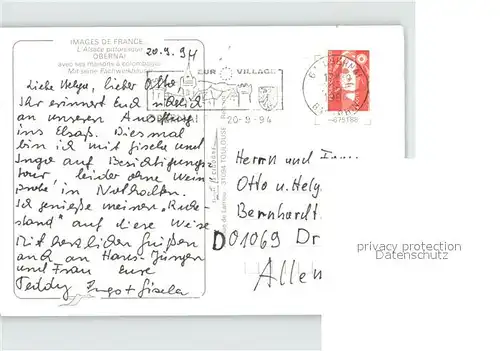 IMAGES DE FRANCE
L'Alsace pittoresque
OBERNAI
avec ses maisons à colombage
20.9.94
Liebe Helga, lieber Otto,
Ihr erinnert Euch sicherlich
an unseren Ausflug
ins Elsaß. Diesmal
bin ich mit Gisela und
Ingo auf Besichtigungs-
tour leider ohne Wein-
probe in Nothalten.
Ich genieße meinen "Ruhe-
stand" auf diese Weise
Mit herzlichen Grüßen
auch an Hans-Jürgen
und Frau Eure
Teddy Ingo + Gisela
VILLAGE
20-9-94
Herrn und
Otto u. Helg
Bernhardt
D01069 Dr
Allen
privacy protection
Datenschutz